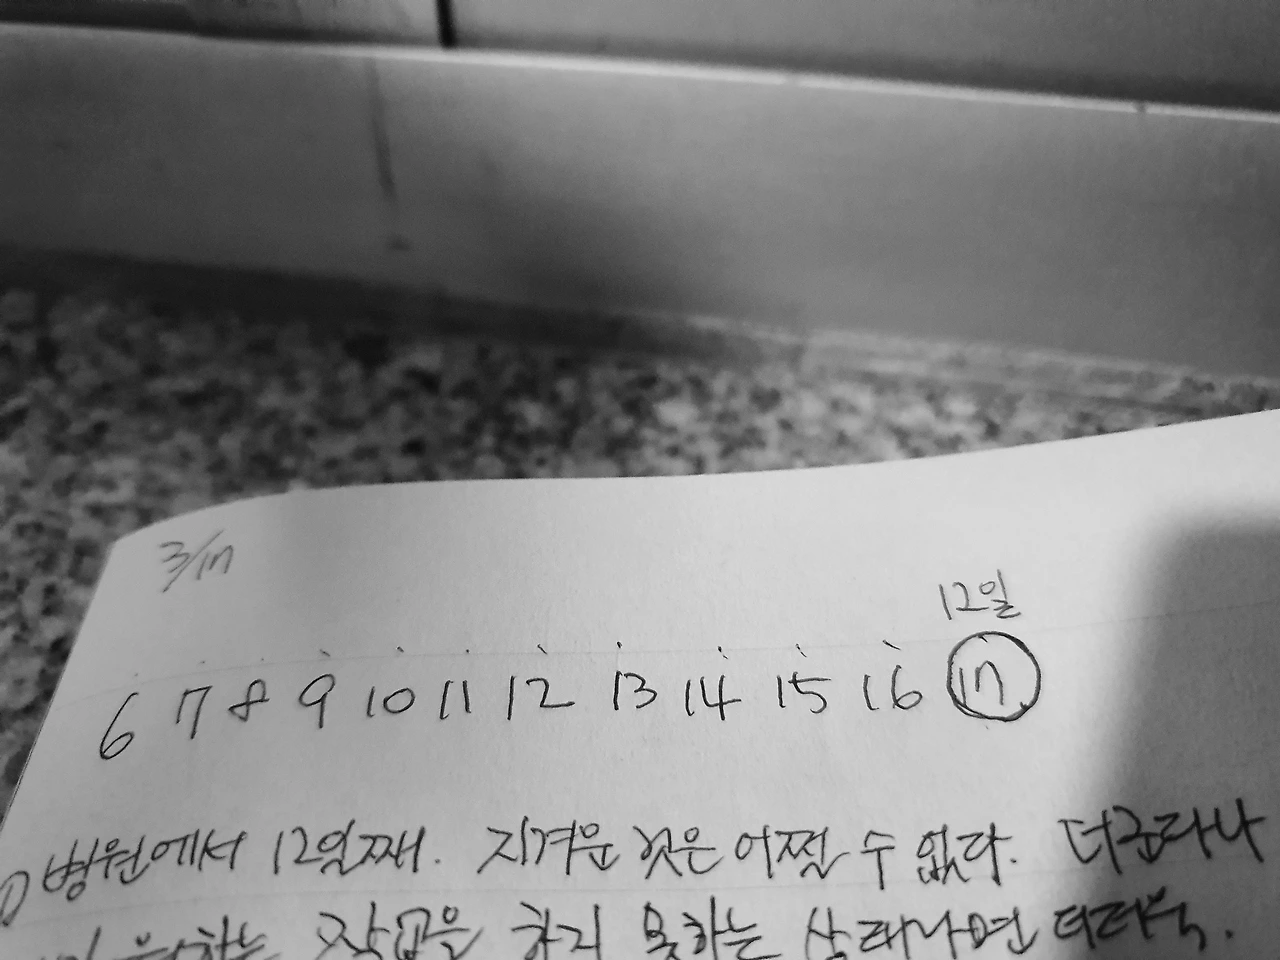 3/17
12일
6 7 8 9 10 11 12 13 14 15 16 17
병원에서 12일째. 지겨운 것은 어쩔 수 없다. 더군다나
하는 작업을 하지 못하는 상태라면 더더욱.